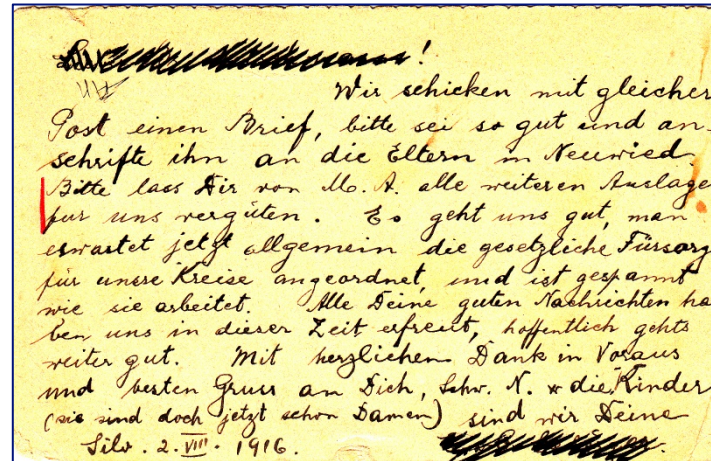 !
Wir schicken mit gleicher
Post einen Brief, bitte sei so gut und an-
schrifte ihn an die Eltern in Neuwied.
Bitte lass Dir von M. A. alle weiteren Auslage
fur uns vergüten. Es geht uns gut, man
erwartet jetzt allgemein die gesetzliche Fürsorg
für unsre Kreise angeordnet, und ist gespannt
wie sie arbeitet. Alle Deine guten Nachrichten ha
ben uns in dieser Zeit erfreut, hoffentlich gehts
weiter gut. Mit herzlichen Dank in Voraus
und besten Gruss an Dich, Schw. N. & die Kinder
(sie sind doch jetzt schon Damen) sind wir Deine
2. VIII. 1916.